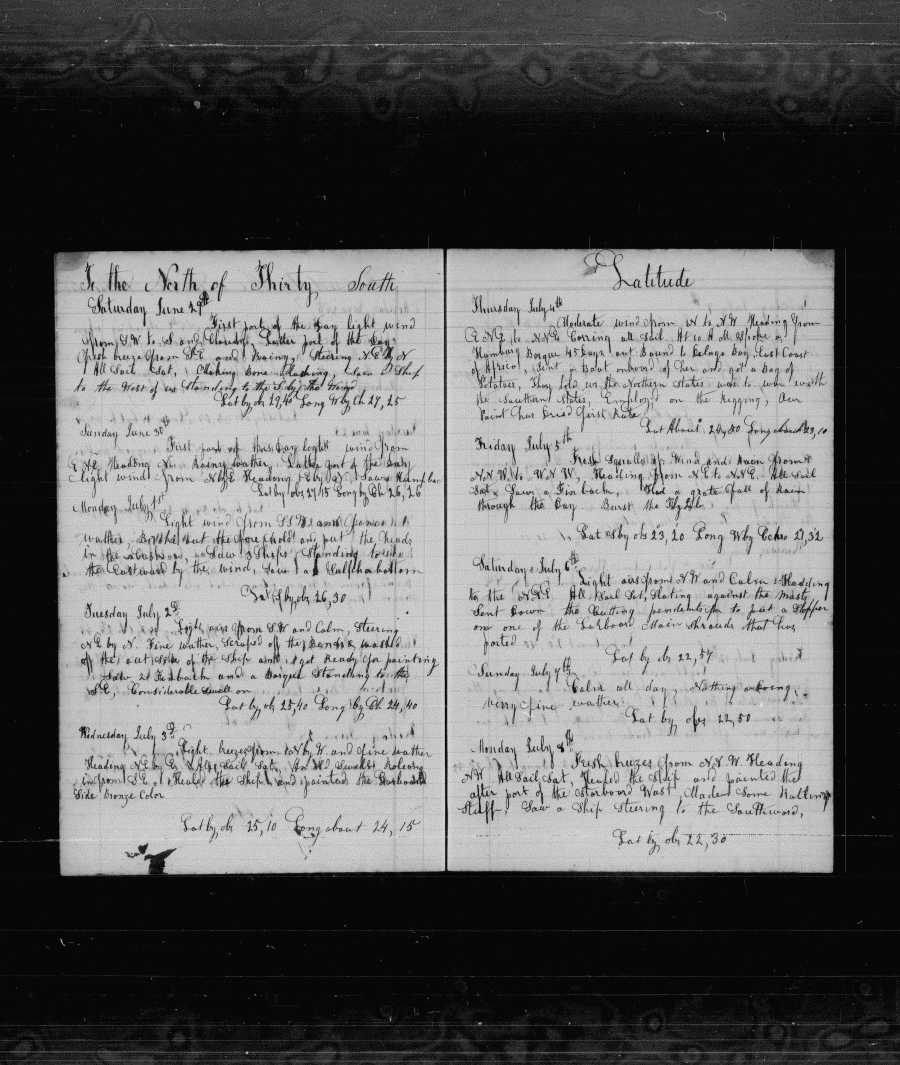 To the North of Thirty South
Saturday June 29th
First part of the Day light wind
from S.W. to S and Cloudy, Latter part of the Day
fresh breeze from S.E. and Rainy, Steering N.E. by N
All Sail Sat, Making Bone Blacking, Saw a Ship
to the West of us Standing to the S. by the Wind
Lat by obs 29,40 Long W by Ch 27, 25
Sunday June 30th
First part of this Day light wind from
E.N.E. Heading N. Rainy wather Latter part of the Day
light wind from N by E Heading E by N Saw Humpba
Lat by obs 27,15 Long by Ch 26, 26
Monday July 1st
Light wind from S.S.W. and
wather, out the forehold and put the heads
in the, Saw 3 Ships Standing to
the Eastward by the wind, Saw a Sulpherbottom
Lat S by obs 26,30
Tuesday July 2d
Light airs from S.W and Calm, Steering
N.E by N. Fine wather, Scraped off the Bends & washed
off the out Side of the Ship and got Ready for painting
Saw a Finback and a Barque Standing to the
S.E, Considerable Swell on
Lat by obs 25,40 Long by Ch 24, 40
Wednesday July 3d
Light brezes from N by W. and fine wather
Heading N.E. by E. All Sail Sat, An Swell Roleing
in from S.E., Healed the Ship and painted the Larboard
Side Bronze Color
Lat by obs 25,10 Long about 24, 15
Latitude
Thursday July 4th
Moderate wind from N to N.W Heading from
E.N.E to N.N.E Corring all Sail At 10 A.M. Spoke a
Hamburg Barque 45 Days out Bound to Delago Bay East Coast
of Africa, Sent a Boat onboard of her and got a Bag of
Potatoes, They told us the Northern States was to war with
the Southern States, Employed on the Rigging, Our
Paint has Dried first Rate
Lat About 24,30 Long about 23,10
Friday July 5th
Fresh Squally Wind and Rain from
N.N.W to W.N.W, Heading from N.E to N.N.E. All Sail
Sat, Saw a Finback, Had a grate fall of Rain
through the Day Burst the Fly Jib
Lat S by obs 23, 20 Long W by Cchro 21,32
Saturday July 6th
Light airs from N.W and Calm Heading
to the N.N.E All Sail Sat, Slating against the Mast,
Sent Down the Cutting pendents for to put a Stopper
on one of the Larboard Main Shrouds that has
parted
Lat by obs 22,57
Sunday July 7th
Calm all day, Nothing Doeing,
verry fine wather
Lat by obs 22,50
Monday July 8th
Fresh brezes from N.N.W. Heading
N.W All Sail Sat, Heaped the Ship and painted the
after part of the Starboard Wast, Maded Some Ratting
Stuff, Saw a Ship Steering to the Southward,
Lat by obs 22,30